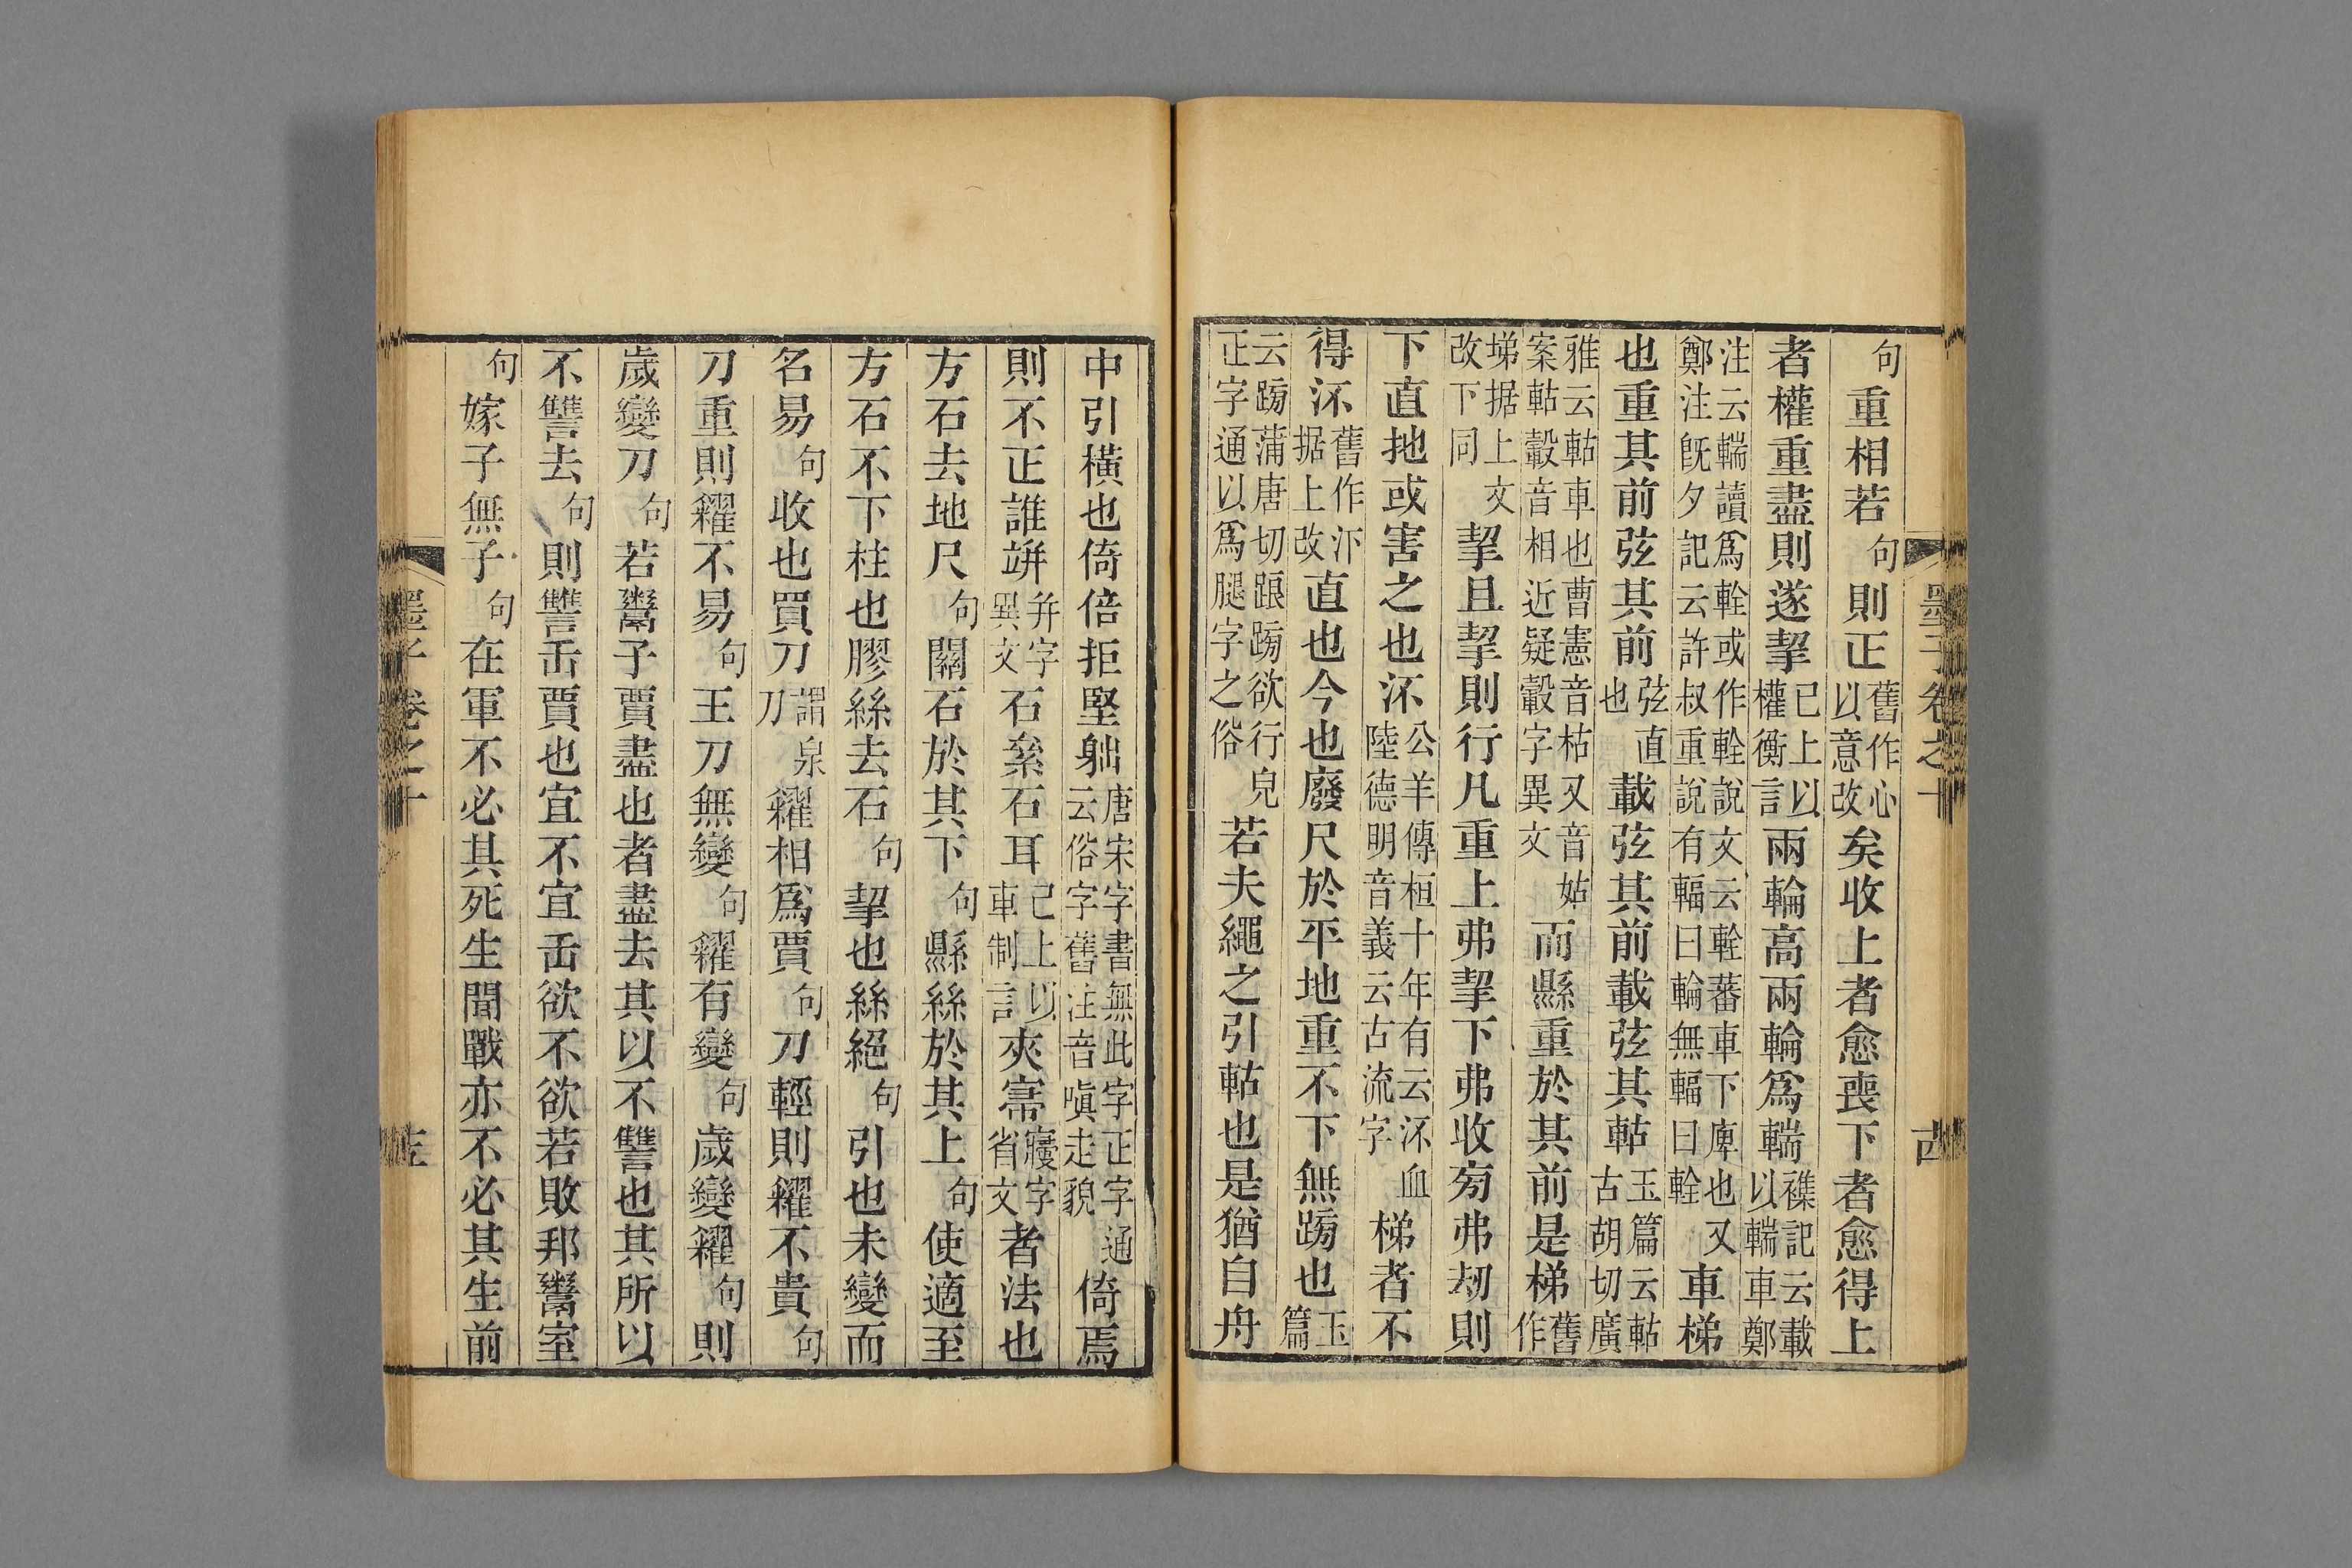 墨子卷之十
古
句重相若句則正舊作心以意改矣收上者愈喪下者愈得上
者權重盡則遂挈已上以權衡言兩輪高兩輪爲輲襍記云載以輲車鄭
注云輲讀爲輇或作輇說文云輇蕃車下庳也又鄭注旣夕記云許叔重說有輻曰輪無輻曰輇車梯
也重其前弦其前弦直也載弦其前載弦其軲玉篇云軲古胡切廣
雅云軲車也曹憲音枯又音姑案軲轂音相近疑轂字異文而縣重於其前是梯舊作
𡍲据上文改下同挈且挈則行凡重上弗挈下弗收㫄弗劫則
下直扡或害之也㳅公羊傳桓十年有云㳅血陸德明音義云古流字梯者不
得㳅舊作汴据上改直也今也廢尺於平地重不下無䠙也玉篇
云䠙蒲唐切踉䠙欲行皃正字通以爲腿字之俗若夫繩之引軲也是猶自舟
中引橫也倚倍拒堅䠳唐宋字書無此字正字通云俗字舊注音嗔走貌倚焉
則不正誰竮幷字異文石絫石耳已上以車制言夾㝲寢字省文者法也
方石去地尺句關石於其下句縣絲於其上句使適至
方石不下柱也膠絲去石句挈也絲絕句引也未變而
名易句收也買刀謂泉刀糴相爲賈句刀輕則糴不貴句
刀重則糴不易句王刀無變句糴有變句歲變糴句則
歲變刀句若鬻子賈盡也者盡去其以不讐也其所以
不讐去句則讐𠙖賈也宜不宜𠙖欲不欲若敗邦鬻室
句嫁子無子句在軍不必其死生聞戰亦不必其生前
墨子卷之十